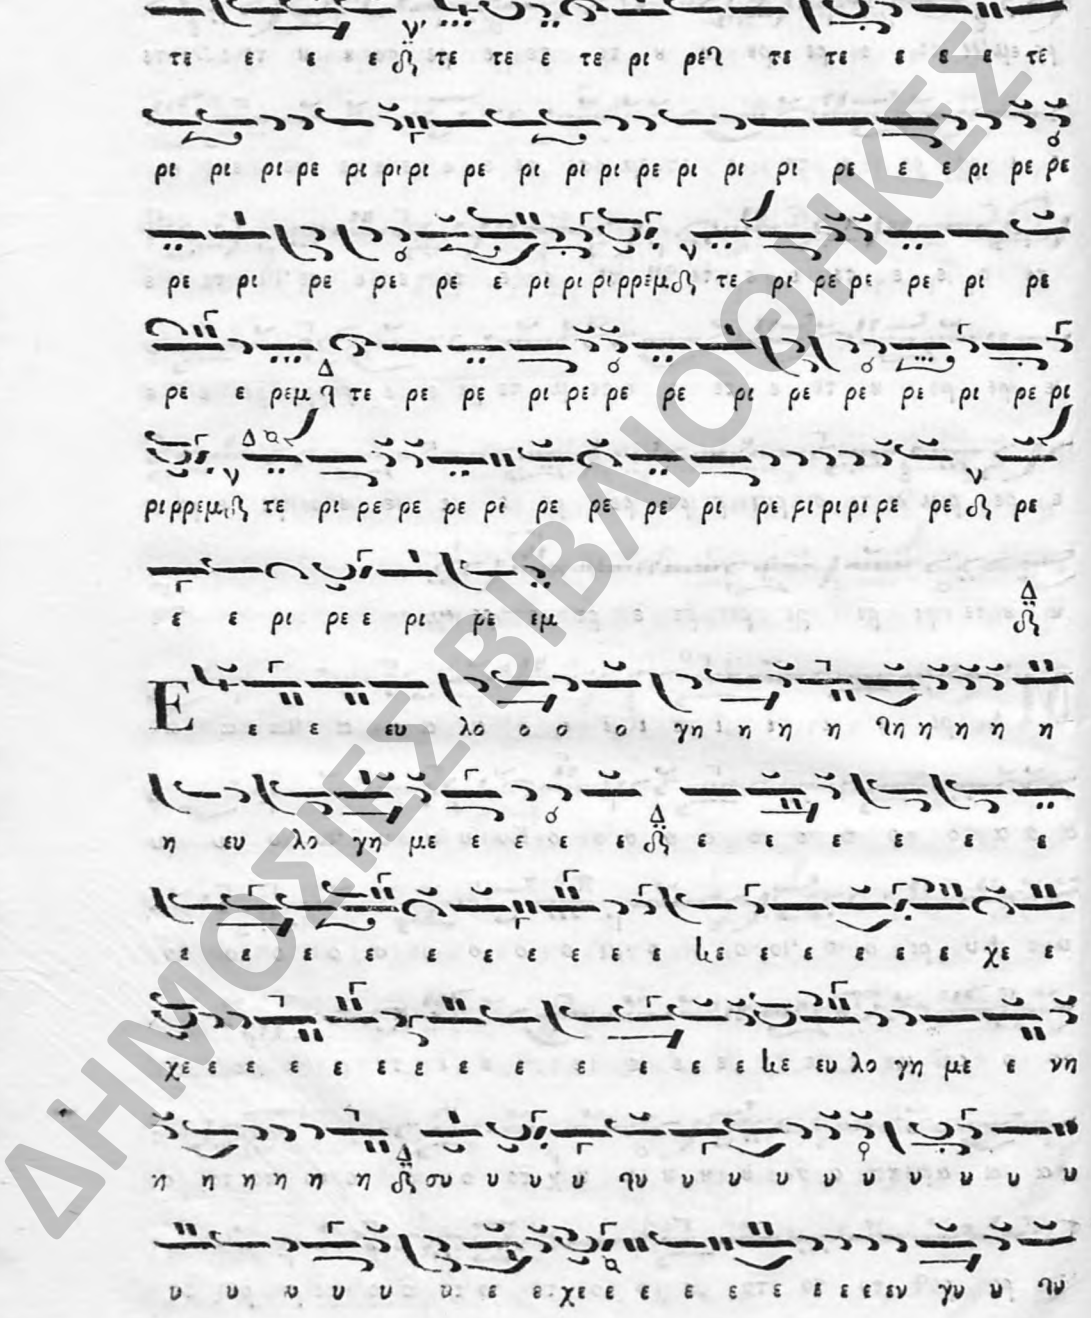 τε ε ε ε τε τε ε τε ρι ρε τε τε ε ε ε τε
ρι ρι ρι ρε ρι ρι ρι ρε ρι ρι ρι ρε ρι ρι ρι ρε ε ε ρι ρε ρε
ρε ρι ρε ρε ρε ε ρι ρι ριρρεμ τε ρι ρε ρι ρε ρι ρε
ρε ε ρεμ τε ρε ρε ρι ρε ρε ρε ρι ρε ρε ρε ρι ρε ρι
ριρρεμ τε ρι ρε ρε ρε ρι ρε ρε ρε ρι ρε ρι ρι ρι ρε ρε ρε
ε ε ρι ρε ε ρι ρε εμ
Ε ε ε ευ λο ο ο ο γη η η η η η η η
η ευ λο γη με ε ε ε ε ε ε ε ε ε ε
ε ε ε ε ε ε ε ε ε ε ε ε ε ε ε ε χε ε
χε ε ε ε ε ε ε ε ε ε ε ε ε ευ λο γη με ε νη
η η η η η η συ υ υ υ υ υ υ υ υ υ υ υ υ υ
υ υ υ υ υ υ ε ε χε ε ε ε ε ε ε ε ε ε εν γυ υ
ΔΗΜΟΣΙΕΣ ΒΙΒΛΙΟΘΗΚΕΣ